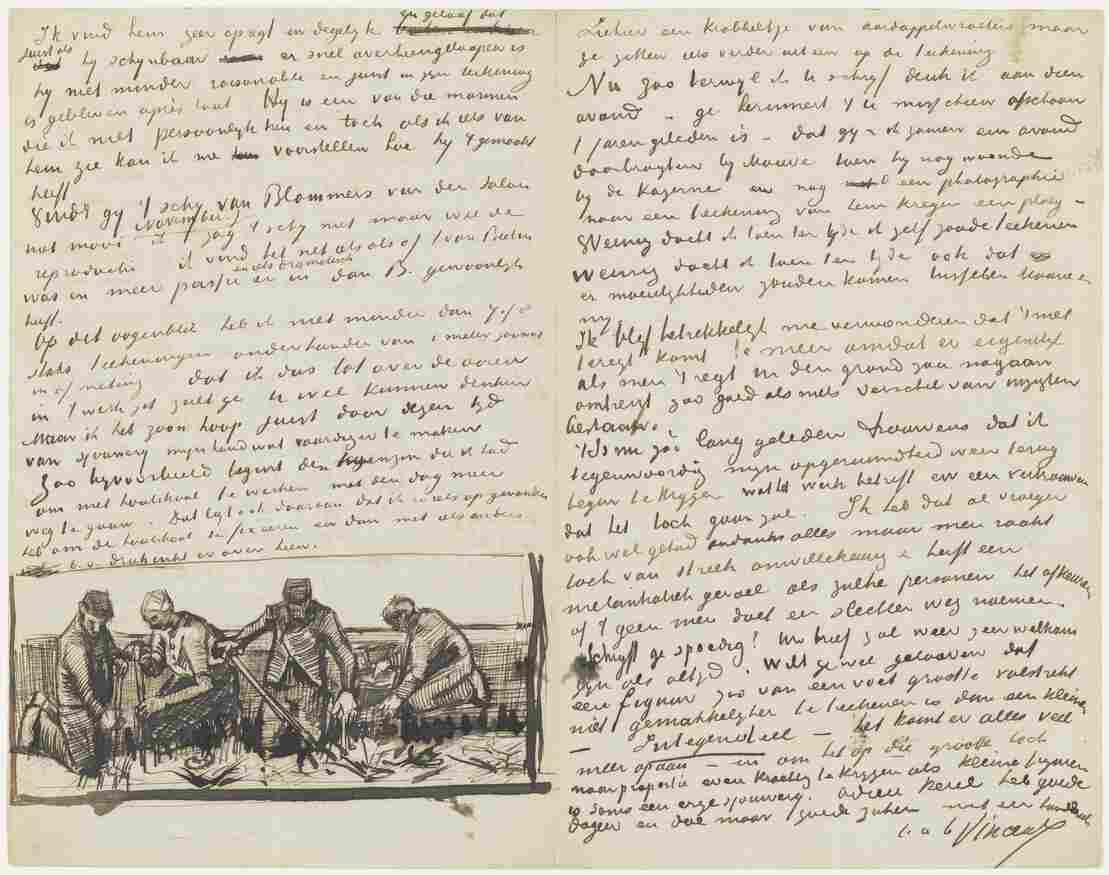 Ik vind hem zeer opregt en degelijk en geloof dat
juist als hij schijnbaar er snel overheengeloopen is
hij niet minder raisonable en juist in zijn teekening
is gebleven après tout. Hij is een van die mannen
die ik niet persoonlijk ken en toch als ik iets van
hem zie kan ik me voorstellen hoe hij 't gemaakt
heeft
Vindt gij 't schij van Blommers van den Salon
niet mooi (November) ik zag 't schij niet maar wel de
reproductie ik vind het net als of 't van Butin
was en meer passie er in en iets dramatisch dan B. gewoonlijk
heeft.
Op dit oogenblik heb ik niet minder dan 7 of 8
stuks teekeningen onderhanden van 1 meter
in afmeting dat ik dus tot over de ooren
in 't werk zit zult ge U wel kunnen denken
Maar ik heb zoon hoop juist door dezen tijd
van sjouwerij mijn hand wat vaardiger te maken
Zoo bijvoorbeeld begint den tegenzin die ik had
om met houtskool te werken met den dag meer
weg te gaan. Dat ligt ook daaraan dat ik er iets op gevonden
heb om de houtskool te fixeeren en dan met iets anders
b.v. drukinkt er over heen.
Hierbij een krabbeltje van aardappelwroeters maar
ze zitten iets verder uit een op de teekening
Nu zoo terwijl ik U schrijf denk ik aan dien
avond – ge herinnert 't U misschien ofschoon
't jaren geleden is – dat gij & ik samen een avond
doorbragten bij Mauve toen hij nog woonde
bij de Kazerne en nog een photographie
naar een teekening van hem kregen een ploeg –
Weinig dacht ik toen ter tijd ik zelf zoude teekenen
weinig dacht ik toen ter tijde ook dat
er moeielijkheden zouden komen tusschen Mauve en
mij.
Ik blijf betrekkelijk me verwonderen dat 't niet
teregt komt te meer omdat er eigentlijk
als men 't regt in den grond zou nagaan
omtrent zoo goed als niets verschil van inzigten
bestaan.
't Is nu zóó lang geleden trouwens dat ik
tegenwoordig mijn opgeruimdheid weer terug
begin te krijgen wat het werk betreft en een vertrouwen
dat het toch gaan zal. Ik heb dat al vroeger
ook wel gehad ondanks alles maar men raakt
toch van streek onwillekeurig & heeft een
melankoliek gevoel als zulke personen het afkeuren
of 't geen men doet een slechten weg noemen.
Schrijft ge spoedig! Uw brief zal weer zeer welkom
zijn als altijd. Wilt ge wel gelooven dat
een figuur zoo van een voet grootte volstrekt
niet gemakkelijker te teekenen is dan een kleiner
– Integendeel – het komt er alles veel
meer op aan – en om het op die grootte toch
naar proportie even krachtig te krijgen als kleine figuren
is soms een erge sjouwerij. Adieu kerel heb goede
dagen en doe maar goede zaken met een handdruk
t. à t. Vincent